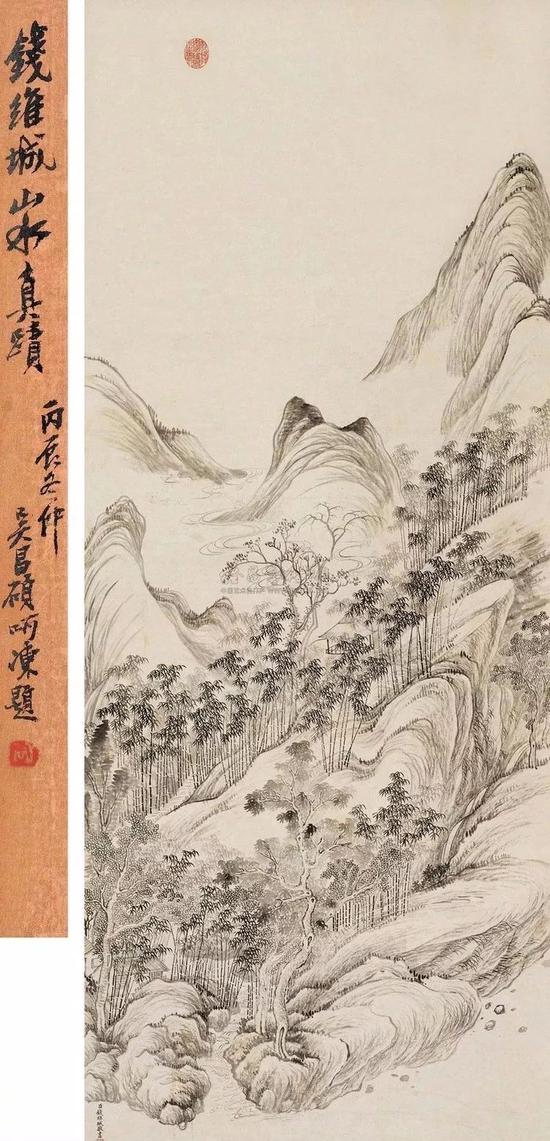 錢維城山水真蹟
丙辰冬仲
吳昌碩呵凍題